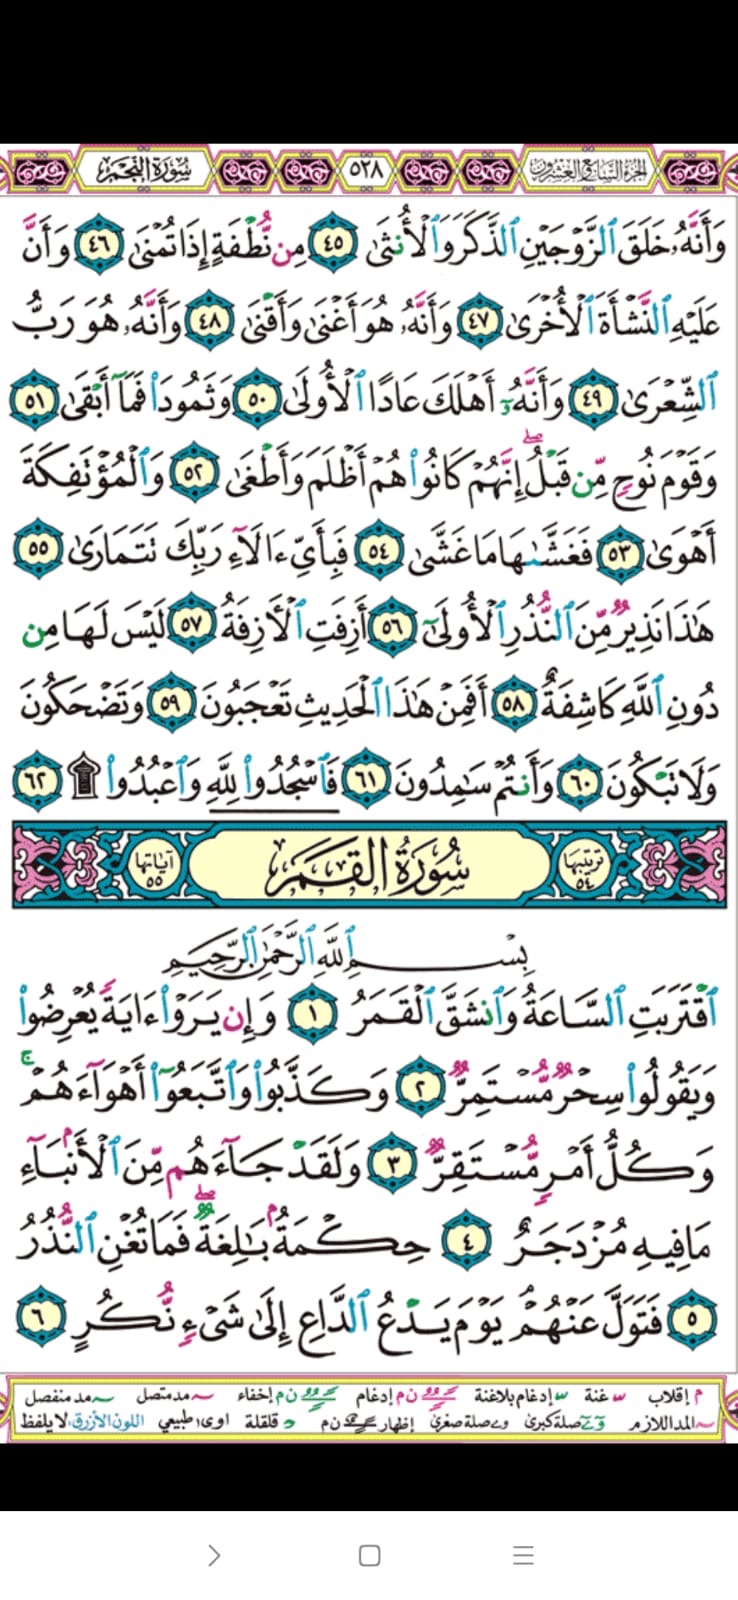 الجزء السابع والعشرون ٥٢٨ سورة النجم
وَأَنَّهُۥ خَلَقَ ٱلزَّوۡجَيۡنِ ٱلذَّكَرَ وَٱلۡأُنثَىٰ ٤٥ مِن نُّطۡفَةٍ إِذَا تُمۡنَىٰ ٤٦ وَأَنَّ
عَلَيۡهِ ٱلنَّشۡأَةَ ٱلۡأُخۡرَىٰ ٤٧ وَأَنَّهُۥ هُوَ أَغۡنَىٰ وَأَقۡنَىٰ ٤٨ وَأَنَّهُۥ هُوَ رَبُّ
ٱلشِّعۡرَىٰ ٤٩ وَأَنَّهُۥٓ أَهۡلَكَ عَادًا ٱلۡأُولَىٰ ٥٠ وَثَمُودَاْ فَمَآ أَبۡقَىٰ ٥١
وَقَوۡمَ نُوحٖ مِّن قَبۡلُۖ إِنَّهُمۡ كَانُواْ هُمۡ أَظۡلَمَ وَأَطۡغَىٰ ٥٢ وَٱلۡمُؤۡتَفِكَةَ
أَهۡوَىٰ ٥٣ فَغَشَّىٰهَا مَا غَشَّىٰ ٥٤ فَبِأَيِّ ءَالَآءِ رَبِّكَ تَتَمَارَىٰ ٥٥
هَٰذَا نَذِيرٞ مِّنَ ٱلنُّذُرِ ٱلۡأُولَىٰٓ ٥٦ أَزِفَتِ ٱلۡأٓزِفَةُ ٥٧ لَيۡسَ لَهَا مِن
دُونِ ٱللَّهِ كَاشِفَةٌ ٥٨ أَفَمِنۡ هَٰذَا ٱلۡحَدِيثِ تَعۡجَبُونَ ٥٩ وَتَضۡحَكُونَ
وَلَا تَبۡكُونَ ٦٠ وَأَنتُمۡ سَٰمِدُونَ ٦١ فَٱسۡجُدُواْۤ لِلَّهِۤ وَٱعۡبُدُواْ ۩ ٦٢
ترتيبها ٥٤ سورة القمر آياتها ٥٥
بِسۡمِ ٱللَّهِ ٱلرَّحۡمَٰنِ ٱلرَّحِيمِ
ٱقۡتَرَبَتِ ٱلسَّاعَةُ وَٱنشَقَّ ٱلۡقَمَرُ ١ وَإِن يَرَوۡاْ ءَايَةٗ يُعۡرِضُواْ
وَيَقُولُواْ سِحۡرٞ مُّسۡتَمِرّٞ ٢ وَكَذَّبُواْ وَٱتَّبَعُوٓاْ أَهۡوَآءَهُمۡۚ
وَكُلُّ أَمۡرٖ مُّسۡتَقِرّٞ ٣ وَلَقَدۡ جَآءَهُم مِّنَ ٱلۡأَنۢبَآءِ
مَا فِيهِ مُزۡدَجَرٌ ٤ حِكۡمَةُۢ بَٰلِغَةٞۖ فَمَا تُغۡنِ ٱلنُّذُرُ
٥ فَتَوَلَّ عَنۡهُمۡۘ يَوۡمَ يَدۡعُ ٱلدَّاعِ إِلَىٰ شَيۡءٖ نُّكُرٍ ٦
م إقلاب غنة إدغام بلاغنة ن م إدغام ن م إخفاء مد متصل مد منفصل
المد اللازم صلة كبرى وے صلة صغرى إظهار ن م قلقلة اوى طبيعي اللون الأزرق لا يلفظ